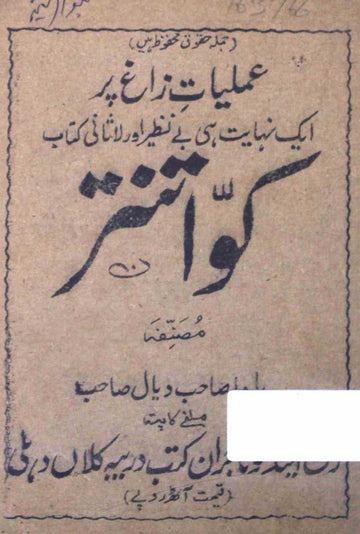 (جملہ حقوق محفوظ ہیں)
عملیاتِ زاغ پر
ایک نہایت ہی بے نظیر اور لاثانی کتاب
کوّا تنتر
مُصَنِّفہَ
صاحب دیال صاحب
ملنے کا پتہ
تاجران کتب دریبہ کلاں دہلی
(قیمت آٹھ روپے)